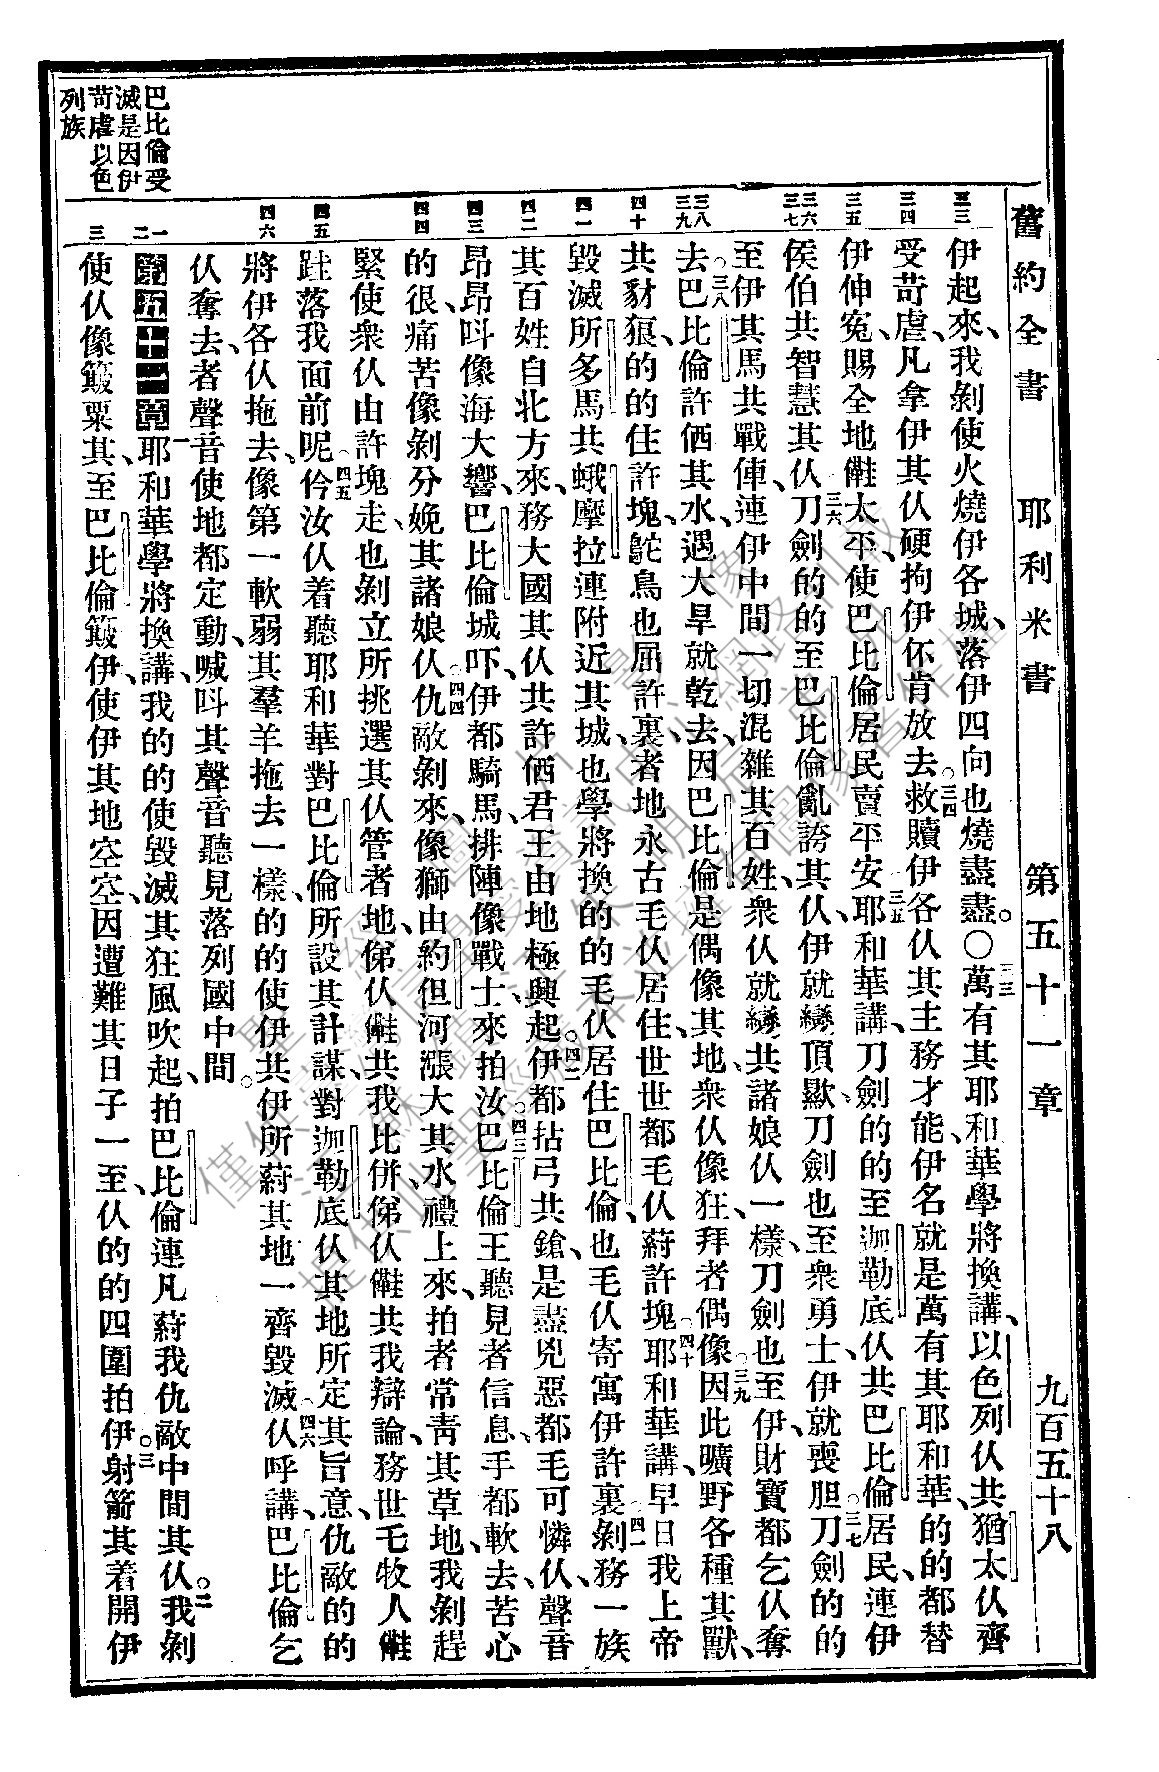 舊約全書 耶利米書 第五十一章 九百五十八
三三
伊起來、我剝使火燒伊各城、落伊四向也燒盡盡。〇三三萬有其耶和華學將換講、以色列仈共猶太仈齊
三四
受苛虐、凡拿伊其仈硬拘伊伓肯放去。〇三四救贖伊各仈其主務才能、伊名就是萬有其耶和華、的的都替
三五
伊伸冤、賜全地㑇太平、使巴比倫居民賣平安。三五耶和華講、刀劍的的至迦勒底仈共巴比倫居民、連伊
三六 三七
侯伯共智慧其仈。三六刀劍的的至巴比倫亂誇其仈、伊就戇頂歇、刀劍也至衆勇士、伊就喪胆。三七刀劍的的
至伊其馬共戰俥、連伊中間一切混雜其百姓、衆仈就戇共諸娘仈一樣、刀劍也至伊財寶都乞仈奪
三八 三九
去。〇三八巴比倫許𠁞其水、遇大旱就乾去、因巴比倫是偶像其地、衆仈像狂、拜者偶像。〇三九因此曠野各種其獸、
四十
共豺狼、的的住許塊、鴕鳥也屈許裏、者地永古毛仈居住、世世都毛仈蒔許塊。〇四十耶和華講、早日我上帝
四一
毀滅所多馬共蛾摩拉連附近其城、也學將換的的毛仈居住巴比倫、也毛仈寄寓伊許裏。〇四一剝務一族
四二
其百姓自北方來、務大國其仈共許𠁞君王由地極興起。四二伊都拈弓共鎗、是盡兇惡都毛可憐仈、聲音
四三
昂昂呌像海大響、巴比倫城吓、伊都騎馬、排陣像戰士、來拍汝。〇四三巴比倫王聽見者信息、手都軟去、苦心
四四
的很、痛苦像剝分娩其諸娘仈。〇四四仇敵剝來、像獅由約但河漲大其水禮上來拍者常靑其草地、我剝趕
緊使衆仈由許塊走、也剝立所挑選其仈管者地、俤仈㑇共我比併、俤仈㑇共我辯論、務世乇牧人㑇
四五
跬落我面前呢。〇四五仱汝仈着聽耶和華對巴比倫所設其計謀、對迦勒底仈其地所定其旨意、仇敵的的
四六
將伊各仈拖去、像第一軟弱其羣羊拖去一樣、的的使伊共伊所蒔其地一齊毀滅。〇四六仈呼講、巴比倫乞
仈奪去、者聲音使地都定動、喊呌其聲音聽見落列國中間。
一 二
第五十一章一耶和華學將換講、我的的使毀滅其狂風吹起、拍巴比倫連凡蒔我仇敵中間其仈。〇二我剝
三
使仈像簸粟其至巴比倫簸伊、使伊其地空空、因遭難其日子一至、仈的的四圍拍伊。〇三射箭其着開伊
巴比倫受
滅是因伊
苛虐以色
列族